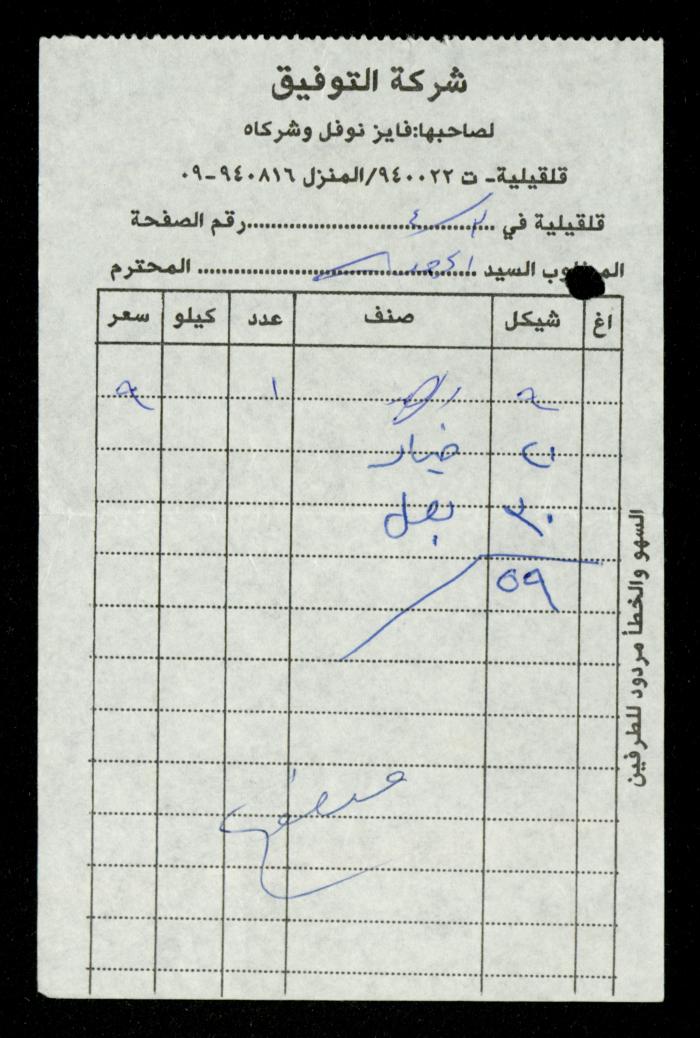 شركة التوفيق
لصاحبها:فايز نوفل وشركاه
قلقيلية- ت ٩٤٠٠٢٢/المنزل ٩٤٠٨١٦-٠٩
قلقيلية في ٤/٣ رقم الصفحة
المطلوب السيد المحترم
اغ شيكل صنف عدد كيلو سعر
٩ ١ ٩
٢٠ خيار
٣٠ بصل
٥٩
السهو والخطأ مردود للطرفين